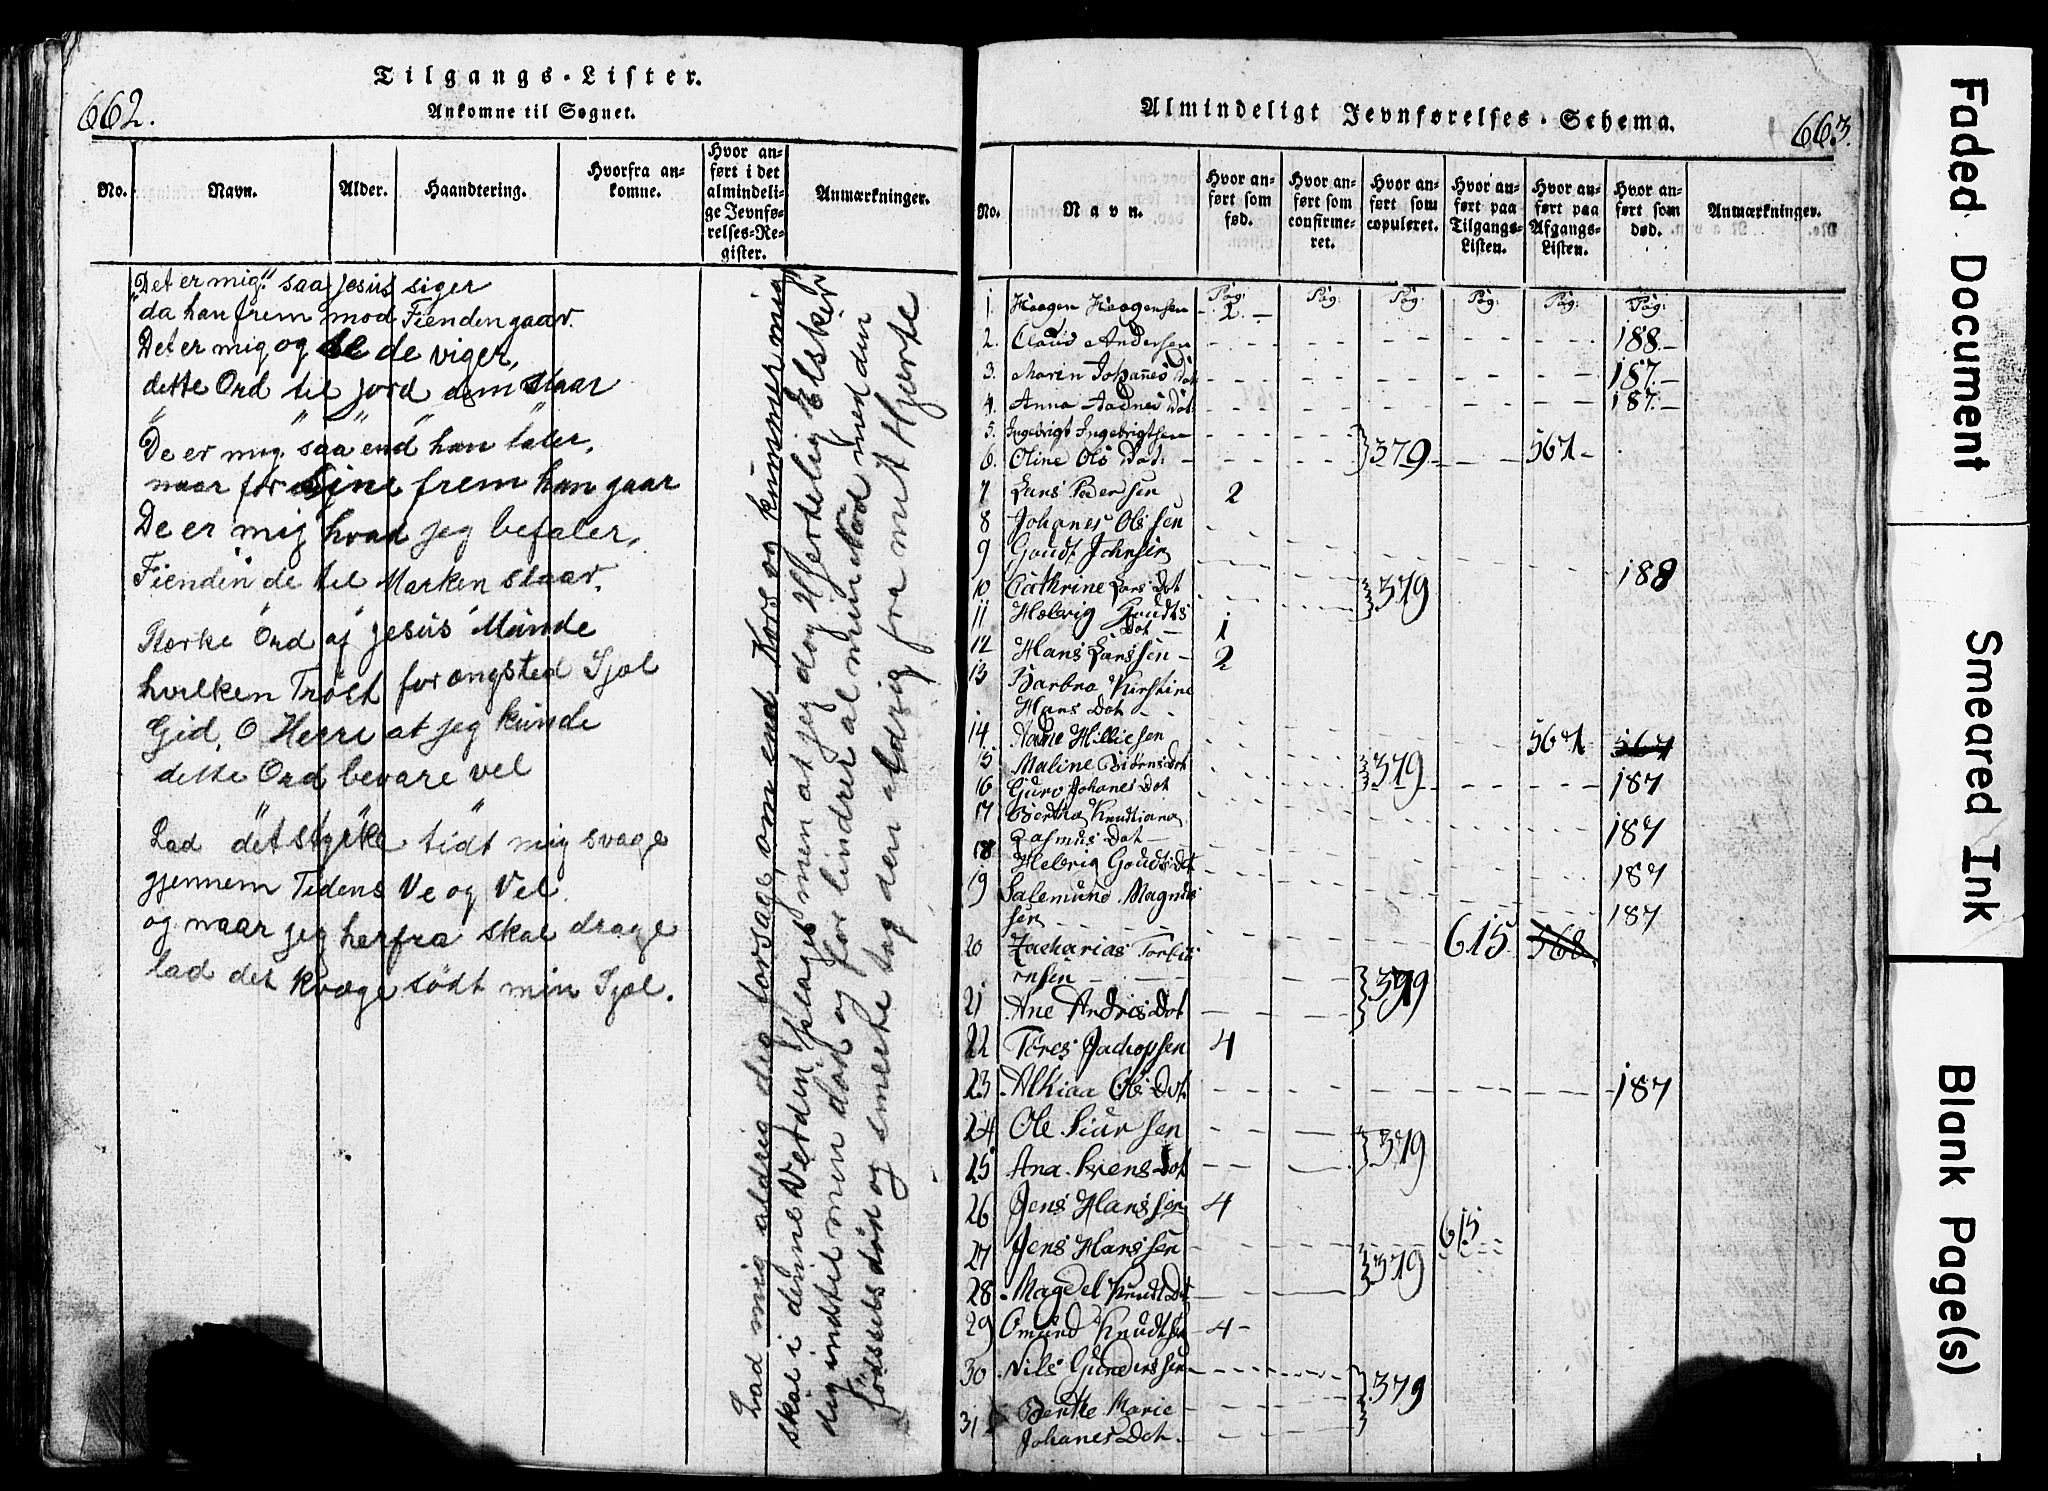 662.
Tilgangs-Lister.
Ankomne til Sognet.
No.
Navn.
Alder.
Haandtering.
Hvorfra an-
komne.
Hvor an-
ført i det
almindeli-
ge Jevnfø-
relses-Re-
gister.
Anmærkninger.
"Det er mig" saa Jesus siger
da han frem mod Fienden gaar.
Det er mig og de viger,
dette Ord til jord dem slaar
De er mig saa end han taler,
naar for sine frem han gaar
De er mig hvad jeg befaler,
Fienden de til Marken slaar.
Stærke Ord af Jesus Munde
hvilken Tröst for ængsted Sjæl
Gid, O Herre at jeg kunde
dette Ord bevare vel
Lad det styrke tidt mig svage
gjennem Tidens Ve og Vel
og naar jeg herfra skal drage
lad det kvæge södt min Sjæl.
Lad mig aldrig dig forsage, om end Kors og kummer mig
skal i denne Verden plage men at jeg dog Hjertelig Elsker
dig indtil min död og for lindrer al min nöd med din
födselsdöd og smerte tag den aldrig fra mit Hjerte
Almindeligt Jevnførelses-Schema.
663.
No.
Navn.
Hvor an-
ført som
fød.
Hvor an-
ført som
confirme-
ret.
Hvor an-
ført som
copuleret.
Hvor an-
ført paa
Tilgangs-
Listen.
Hvor an-
ført paa
Afgangs-
Listen.
Hvor an-
ført som
død.
Anmærkninger.
Pag: Pag: Pag: Pag: Pag: Pag:
1. Haagen Haagensen 2
2. Claus Andersen 188
3. Maren Johañes Dot 187
4. Anna Aadnes Dot 187
5. Ingebrigt Ingebrigtsen
6. Oline Ols Dot 379 567
7 Lars Pedersen 2
8 Johanes Olssen
9 Goudt Johnsen 188
10 Cathrine Lars Dot 379
11 Helvig Goudts
Dot 1
12 Hans Larssen 2
13 Barbra Kirstine
Hans Dot
14. Aadne Hilliesen 567 567
15 Maline Biörns Dot 379
16 Guro Johanes Dot 187
17 Bertha Knudtiana
Rasmus Dot 187
18 Helvig Goudts Dot 187
19 Salemund Magnus
sen 187
20 Zacharias Torbiö
rnsen 615 568
21 Ane Andres Dot 379
22 Töres Jachopsen 4
23 Alkiaa Ols Dot 187
24 Ole Siursen
25 Ana Svens Dot 379
26 Jens Hanssen 4
27 Jens Hanssen 615
28 Magdel Knudt Dot 379
29 Omund Knudtsen 4
30 Nils Gunderssen
31 Benthe Marie
Johanes Dot 379
Faded Document
Smeared Ink
Blank Page(s)